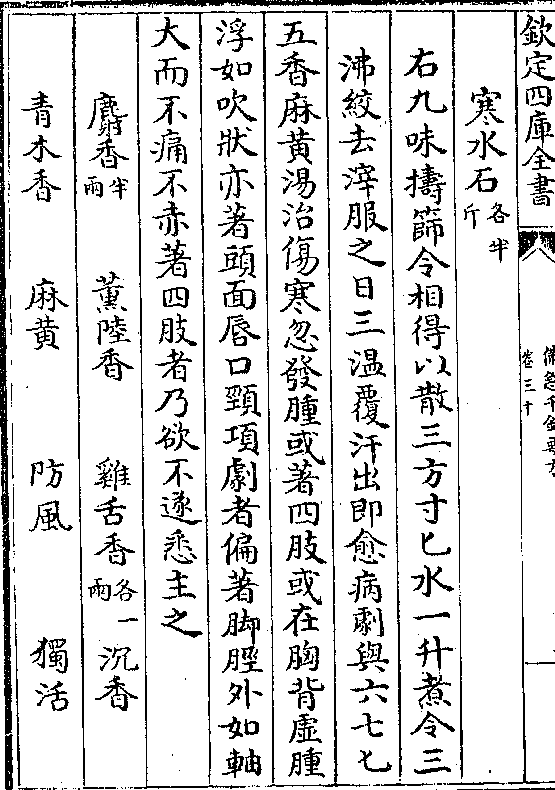 欽定四庫全書
備急千金要方
卷三十
寒水石各半斤
右九味擣篩令相得以散三方寸匕水一升煮令三
沸絞去滓服之日三温覆汗出即愈病劇與六七匕
五香麻黄湯治傷寒忽發腫或著四肢或在胸背虛腫
浮如吹狀亦著頭面唇口頸項劇者偏著脚脛外如軸
大而不痛不赤著四肢者乃欲不遂悉主之
麝香半兩 薫陸香 雞舌香各一兩 沉香
青木香 麻黄 防風 獨活